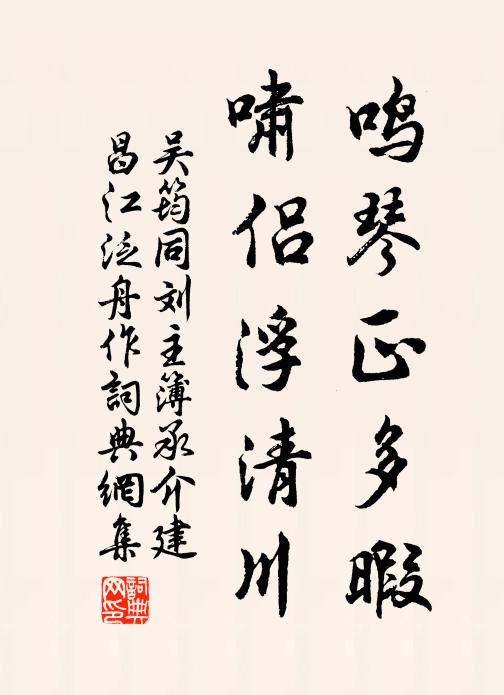 鸣琴正多暇
啸侣浮清川
吴筠同刘主簿承介建
昌江泛舟作词典网集
詞典网印